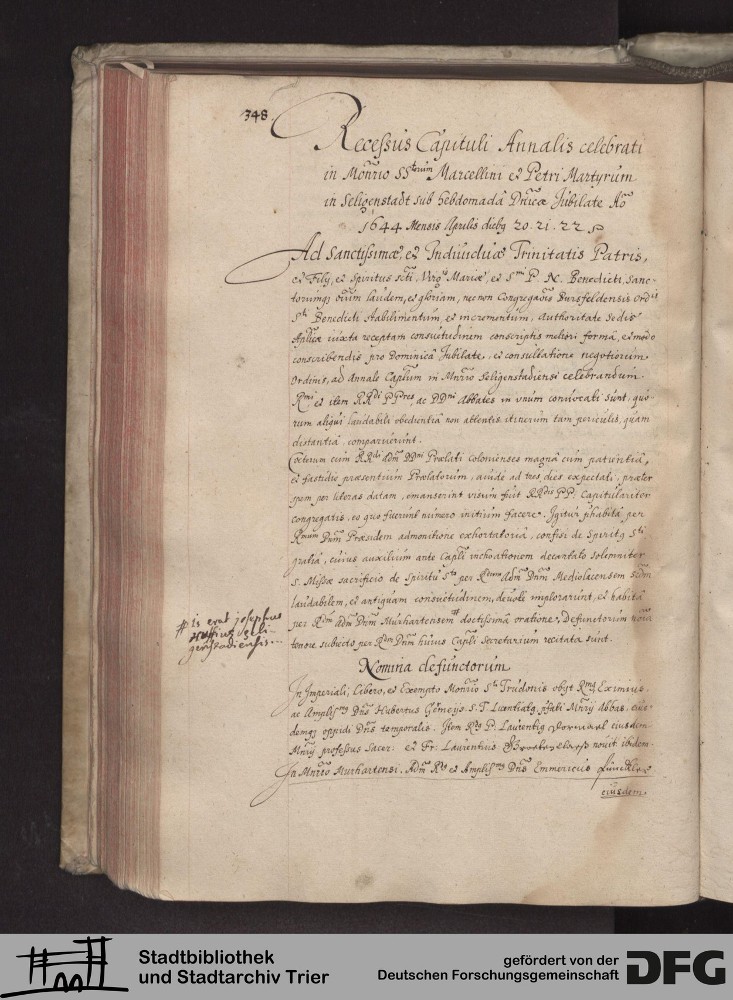 348.
Recessus Capituli Annalis celebrati
in Mon̄rio SStorum Marcellini et Petri Martyrum
in Seligenstadt sub hebdomadâ Dn̄icæ Jubilate Ao
1644 Mensis Aprilis diebq 20. 21. 22
Ad Sanctissimæ, et Indiuiduæ Trinitatis Patris,
et Filij, et Spiritus scti, Virgs Mariæ, et Smi P. N. Benedicti, Sanc-
torumqz oīum laudem, et gloriam, nec non Congregaōis Bursfeldensis Ordis
Sti Benedicti stabilimentum, et incrementum, Authoritate Sedis
Aplicæ iuxta receptam consuetudinem conscriptis meliori formâ, et modo
conscribendis pro Dominicâ Jubilate, et consultatione negotiorum
Ordinis, ad Annale Caplum in Mn̄rio Seligenstadiensi celebrandum
Rmi et item RRdi PPres, ac DDni Abbates in vnum conuocati sunt, quo-
rum aliqui laudabili obedientiâ non attentis itinerum tam periculis, quam
distantiâ, comparuerunt.
Cæterum cum RRdi adm DDni Prælati Colonienses magnâ cum patientiâ,
et fastidio præsentium Prælatorum, auidè ad tres dies expectati, præter
spem per literas datam, emanserint visum fuit RRdis PP. Capitulariter
congregatis, eo quo fuerunt numero initium facere. Igitur p̄habitâ per
Rmum Dn̄m Præsidem admonitione exhortatoriâ, confisi de Spiritq Sti
gratiâ, cuius auxilium ante Capli inchoationem decantato solemniter
S. Missæ sacrificio de Spiritu Sto per Rdum adm Dn̄m Mediolacensem sēdm
laudabilem, et antiquam consuetudinem, deuotè implorarunt, et habitâ
per Rdm adm Dn̄m Murhartensem # doctissimâ oratione, Defunctorum noīa
tenore subiecto per Rdm Dn̄m huius Capli Secretarium recitata sunt.
# is erat josephus
seli-
genstadiensis
Nomina defunctorum
In Imperiali, libero, et Exempto Monrio Sti Trudonis obijt Rmq Eximius,
ac Ampliss mq Dn̄s Hubertus Germeijs S. T. Licentiatq, p̄fati Mn̄rij Abbas, eius-
demqz oppidi Dn̄s temporalis. Item Rdq P. Laurentiq eiusdem
Mn̄rij professus Sacer: et Fr. Laurentius nouit: ibidem
In Mnr̄io Murhartensi. Adm Rdq et Ampliss mq Dn̄s Emmericus
eiusdem.
Stadtbibliothek
und Stadtarchiv Trier
gefördert von der
Deutschen Forschungsgemeinschaft
DFG